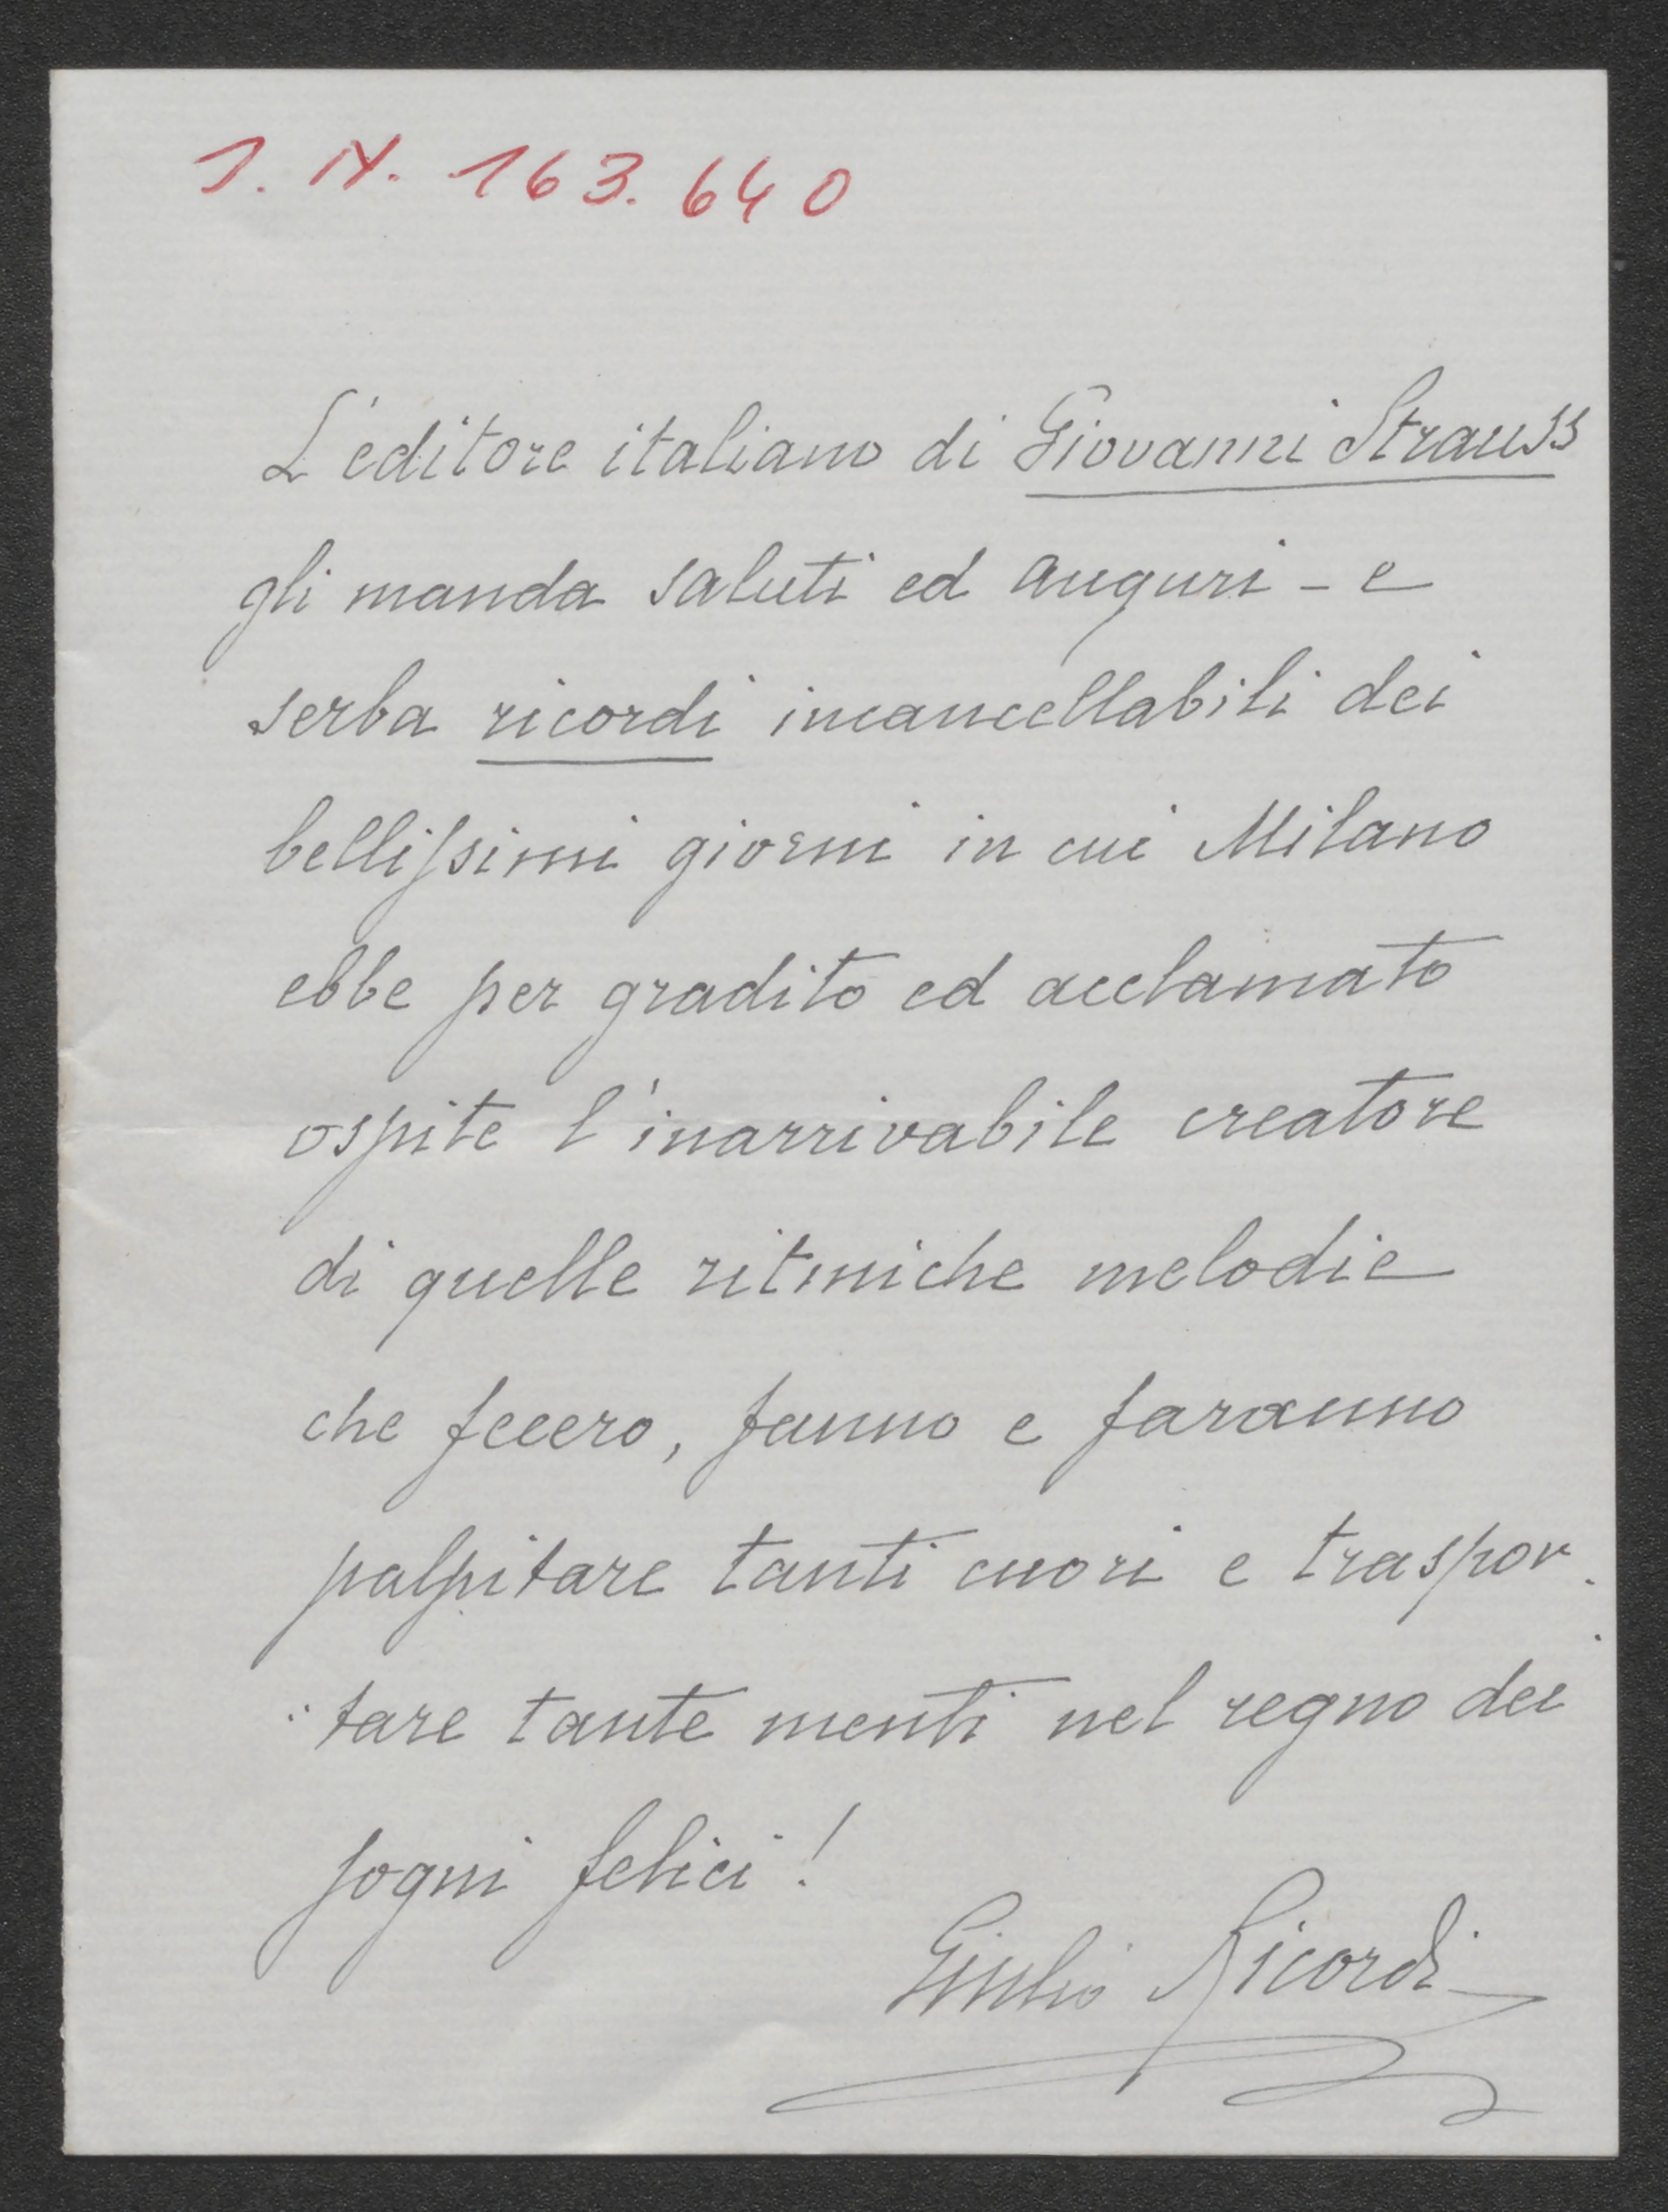 J. N. 163.640
L'editore italiano di Giovanni Strauss
gli manda saluti ed auguri - e
serba ricordi incancellabili dei
bellissimi giorni in cui Milano
ebbe per gradito ed acclamato
ospite l'inarrivabile creatore
di quelle ritmiche melodie
che fecero, fanno e faranno
palpitare tanti cuori e traspor
tare tante menti nel regno dei
sogni felici!
Giulio Ricordi